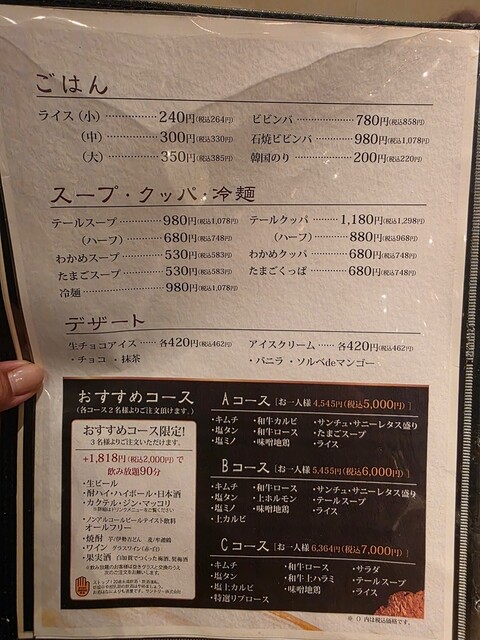 ごはん
ライス（小）…………240円(税込264円)
（中）…………300円(税込330円)
（大）…………350円(税込385円)
ビビンバ…………780円(税込858円)
石焼ビビンバ………980円(税込1,078円)
韓国のり…………200円(税込220円)
スープ・クッパ・冷麺
テールスープ………980円(税込1,078円)
（ハーフ）………680円(税込748円)
わかめスープ………530円(税込583円)
たまごスープ………530円(税込583円)
冷麺…………980円(税込1,078円)
テールクッパ………1,180円(税込1,298円)
（ハーフ）………880円(税込968円)
わかめクッパ………680円(税込748円)
たまごくっぱ………680円(税込748円)
デザート
生チョコアイス……各420円(税込462円)
・チョコ ・抹茶
アイスクリーム……各420円(税込462円)
・バニラ ・ソルベdeマンゴー
おすすめコース
（各コース2名様よりご注文頂けます。）
おすすめコース限定!
3名様よりご注文いただけます。
+1,818円(税込2,000円)で
飲み放題90分
・生ビール
・酎ハイ・ハイボール・日本酒
・カクテル・ジン・マッコリ
※詳細はドリンクメニューをご覧ください
・ノンアルコールビールテイスト飲料
オールフリー
・焼酎
・ワイン グラスワイン(赤・白)
・果実酒
※飲み放題はグラス交換
Aコース［お一人様 4,545円(税込5,000円)］
・キムチ
・塩タン
・塩ミノ
・和牛カルビ
・和牛ロース
・味噌地鶏
・サンチュ・サニーレタス盛り
・たまごスープ
・ライス
Bコース［お一人様 5,455円(税込6,000円)］
・キムチ
・塩タン
・塩ミノ
・上カルビ
・和牛ロース
・上ホルモン
・味噌地鶏
・サンチュ・サニーレタス盛り
・テールスープ
・ライス
Cコース［お一人様 6,364円(税込7,000円)］
・キムチ
・塩タン
・塩上カルビ
・特選リブロース
・和牛ロース
・和牛上ハラミ
・味噌地鶏
・サラダ
・テールスープ
・ライス
※（）内は税込価格です。